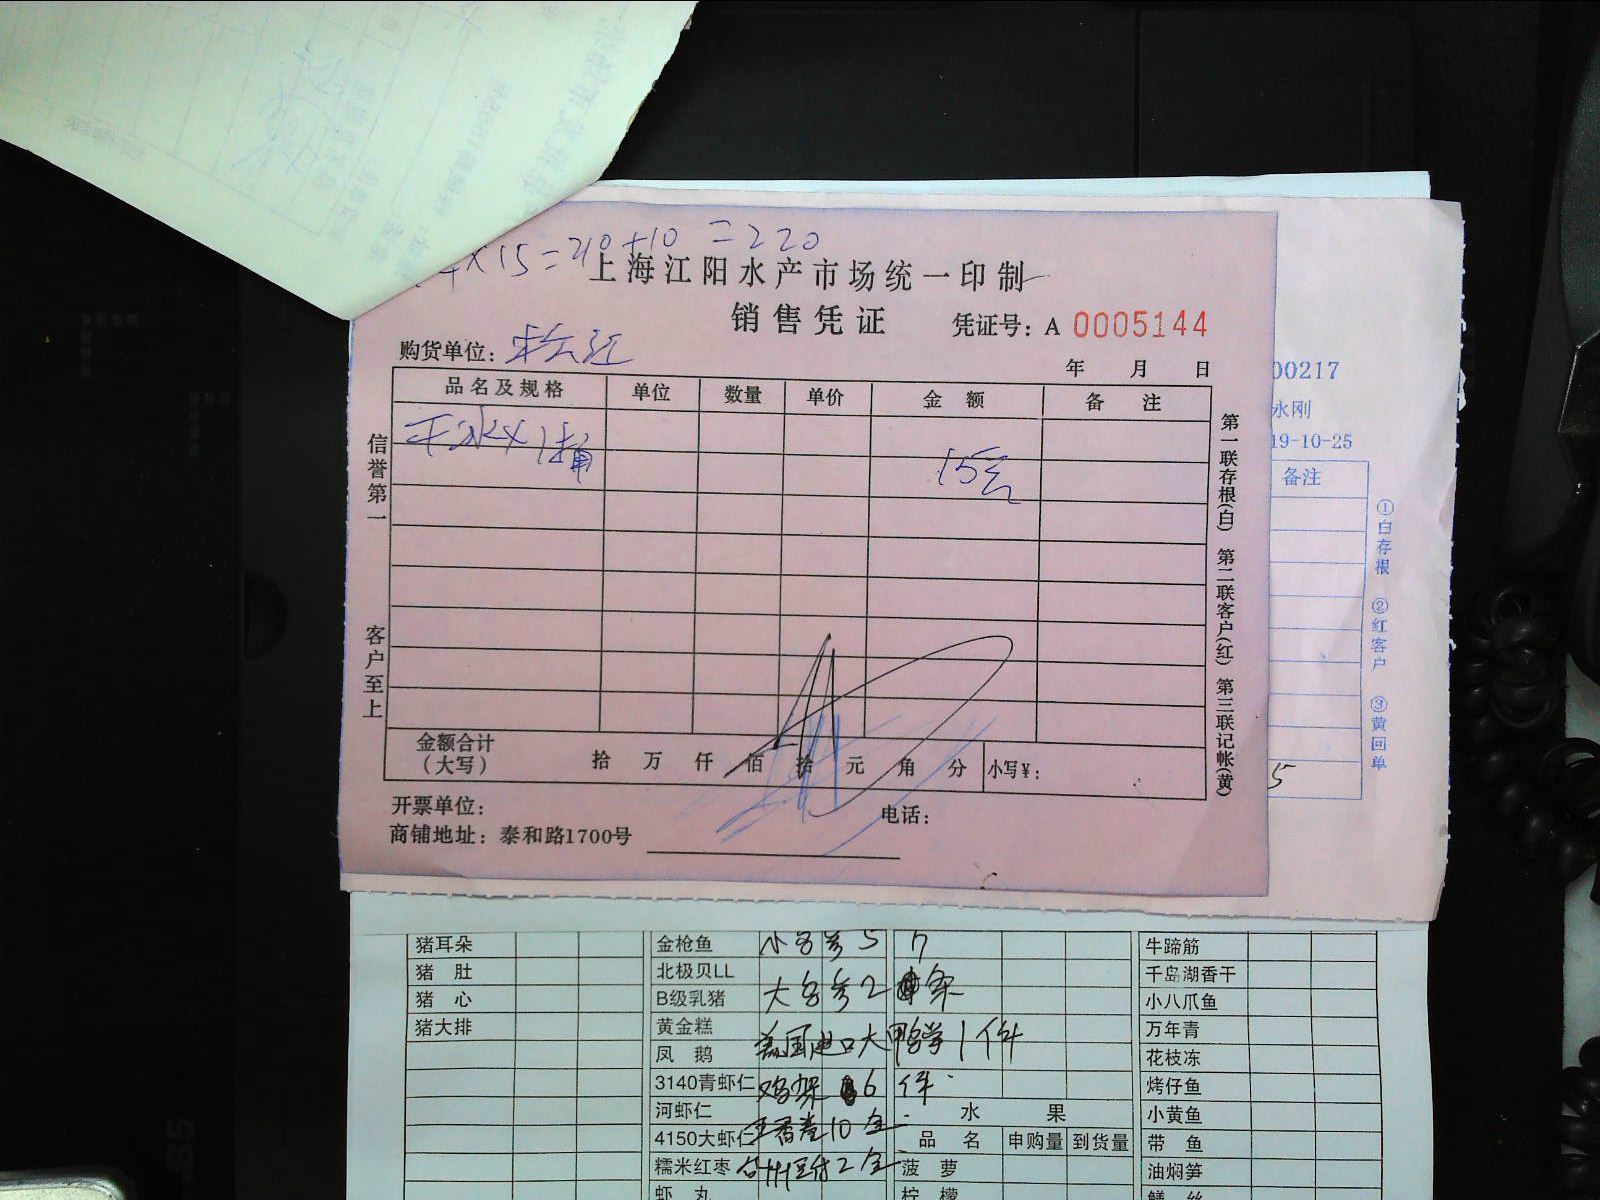 ×15=210+10=220
上海江阳水产市场统一印制
销售凭证
凭证号：A 0005144
购货单位：松江
年 月 日
品名及规格 单位 数量 单价 金额 备注
干冰×1箱
15元
金额合计（大写） 拾 万 仟 佰 拾 元 角 分 小写¥：
开票单位： 电话：
商铺地址：泰和路1700号
信誉第一 客户至上
第一联存根(白) 第二联客户(红) 第三联记帐(黄)
00217
永刚
19-10-25
备注
①白存根 ②红客户 ③黄回单
5
猪耳朵 金枪鱼 牛蹄筋
猪肚 北极贝LL 千岛湖香干
猪心 B级乳猪 大 2 条 小八爪鱼
猪大排 黄金糕 万年青
凤鹅 美国进口大鸭掌1件 花枝冻
3140青虾仁 鸡架 6件 烤仔鱼
河虾仁 水果 小黄鱼
4150大虾仁 10 品名 申购量 到货量 带鱼
糯米红枣 2 菠萝 油焖笋
虾丸 柠檬 鳝丝